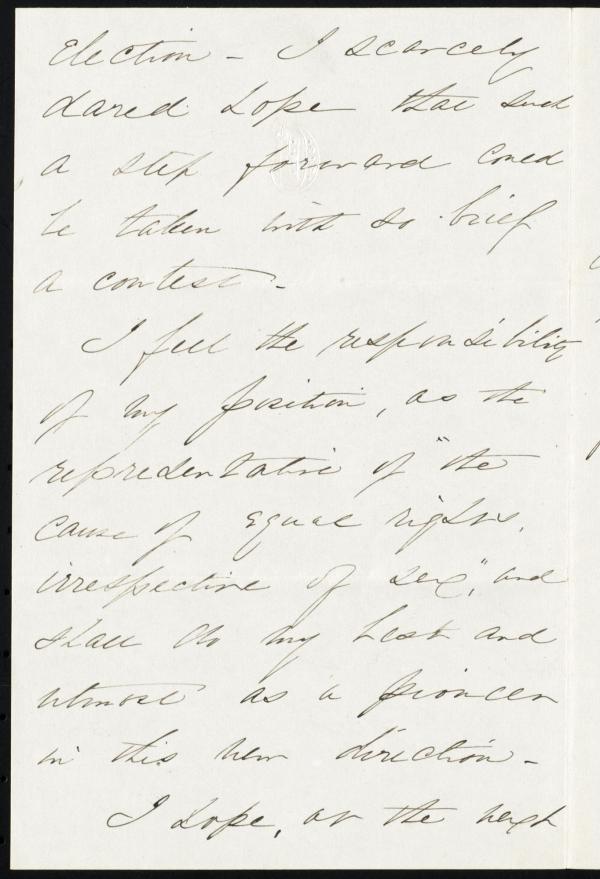 Election - I scarcely
dared hope that such
a step forward could
be taken with so brief
a contest -
I feel the responsibility
of my position, as the
representative of "the
cause of equal rights,
irrespective of sex", and
shall do my best and
utmost as a pioneer
in this new direction -
I hope, at the next